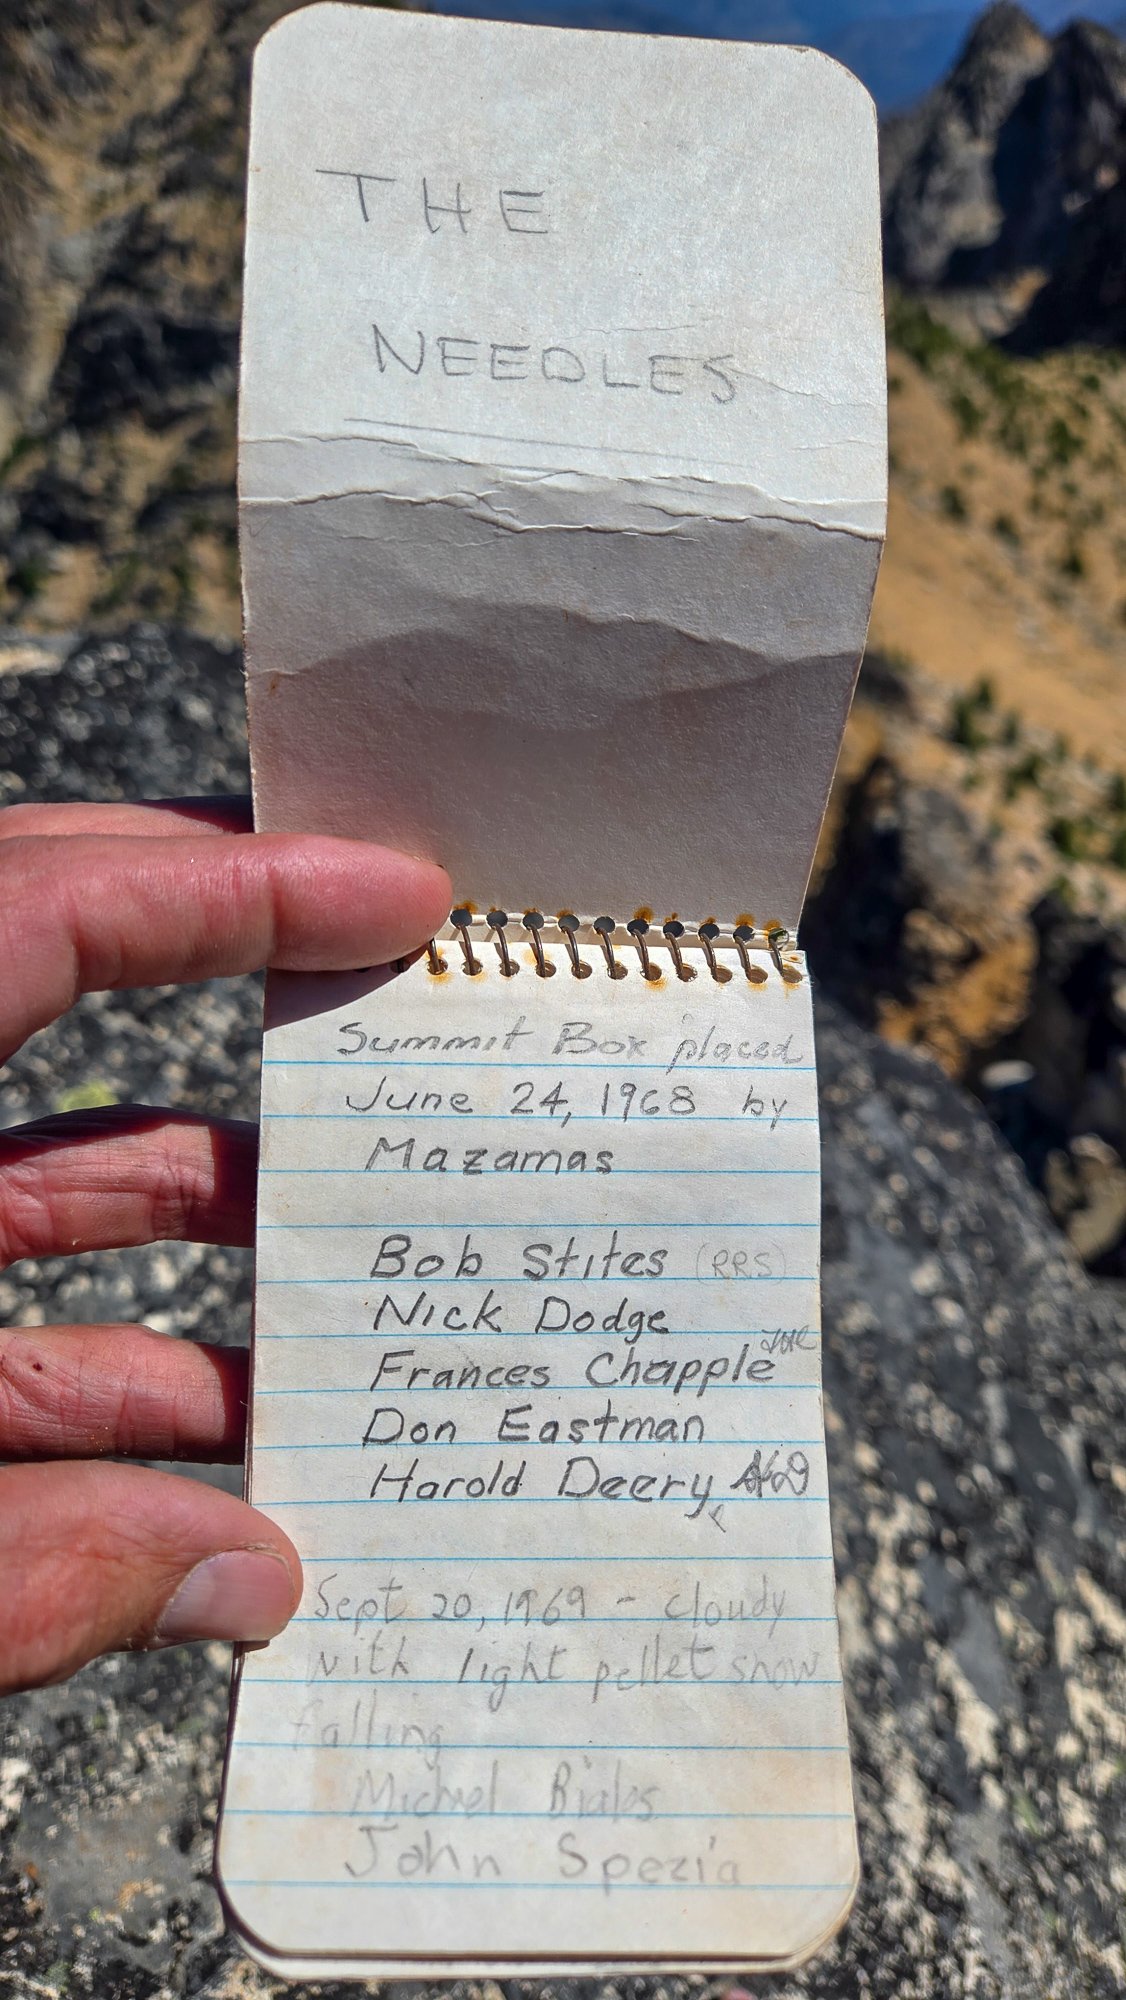 THE
NEEDLES
Summit Box placed
June 24, 1968 by
Mazamas
Bob Stites (RRS)
Nick Dodge
Frances Chapple
Don Eastman
Harold Deery
Sept 20, 1969 - cloudy
with light pellet snow
falling
Michael
John Spezia